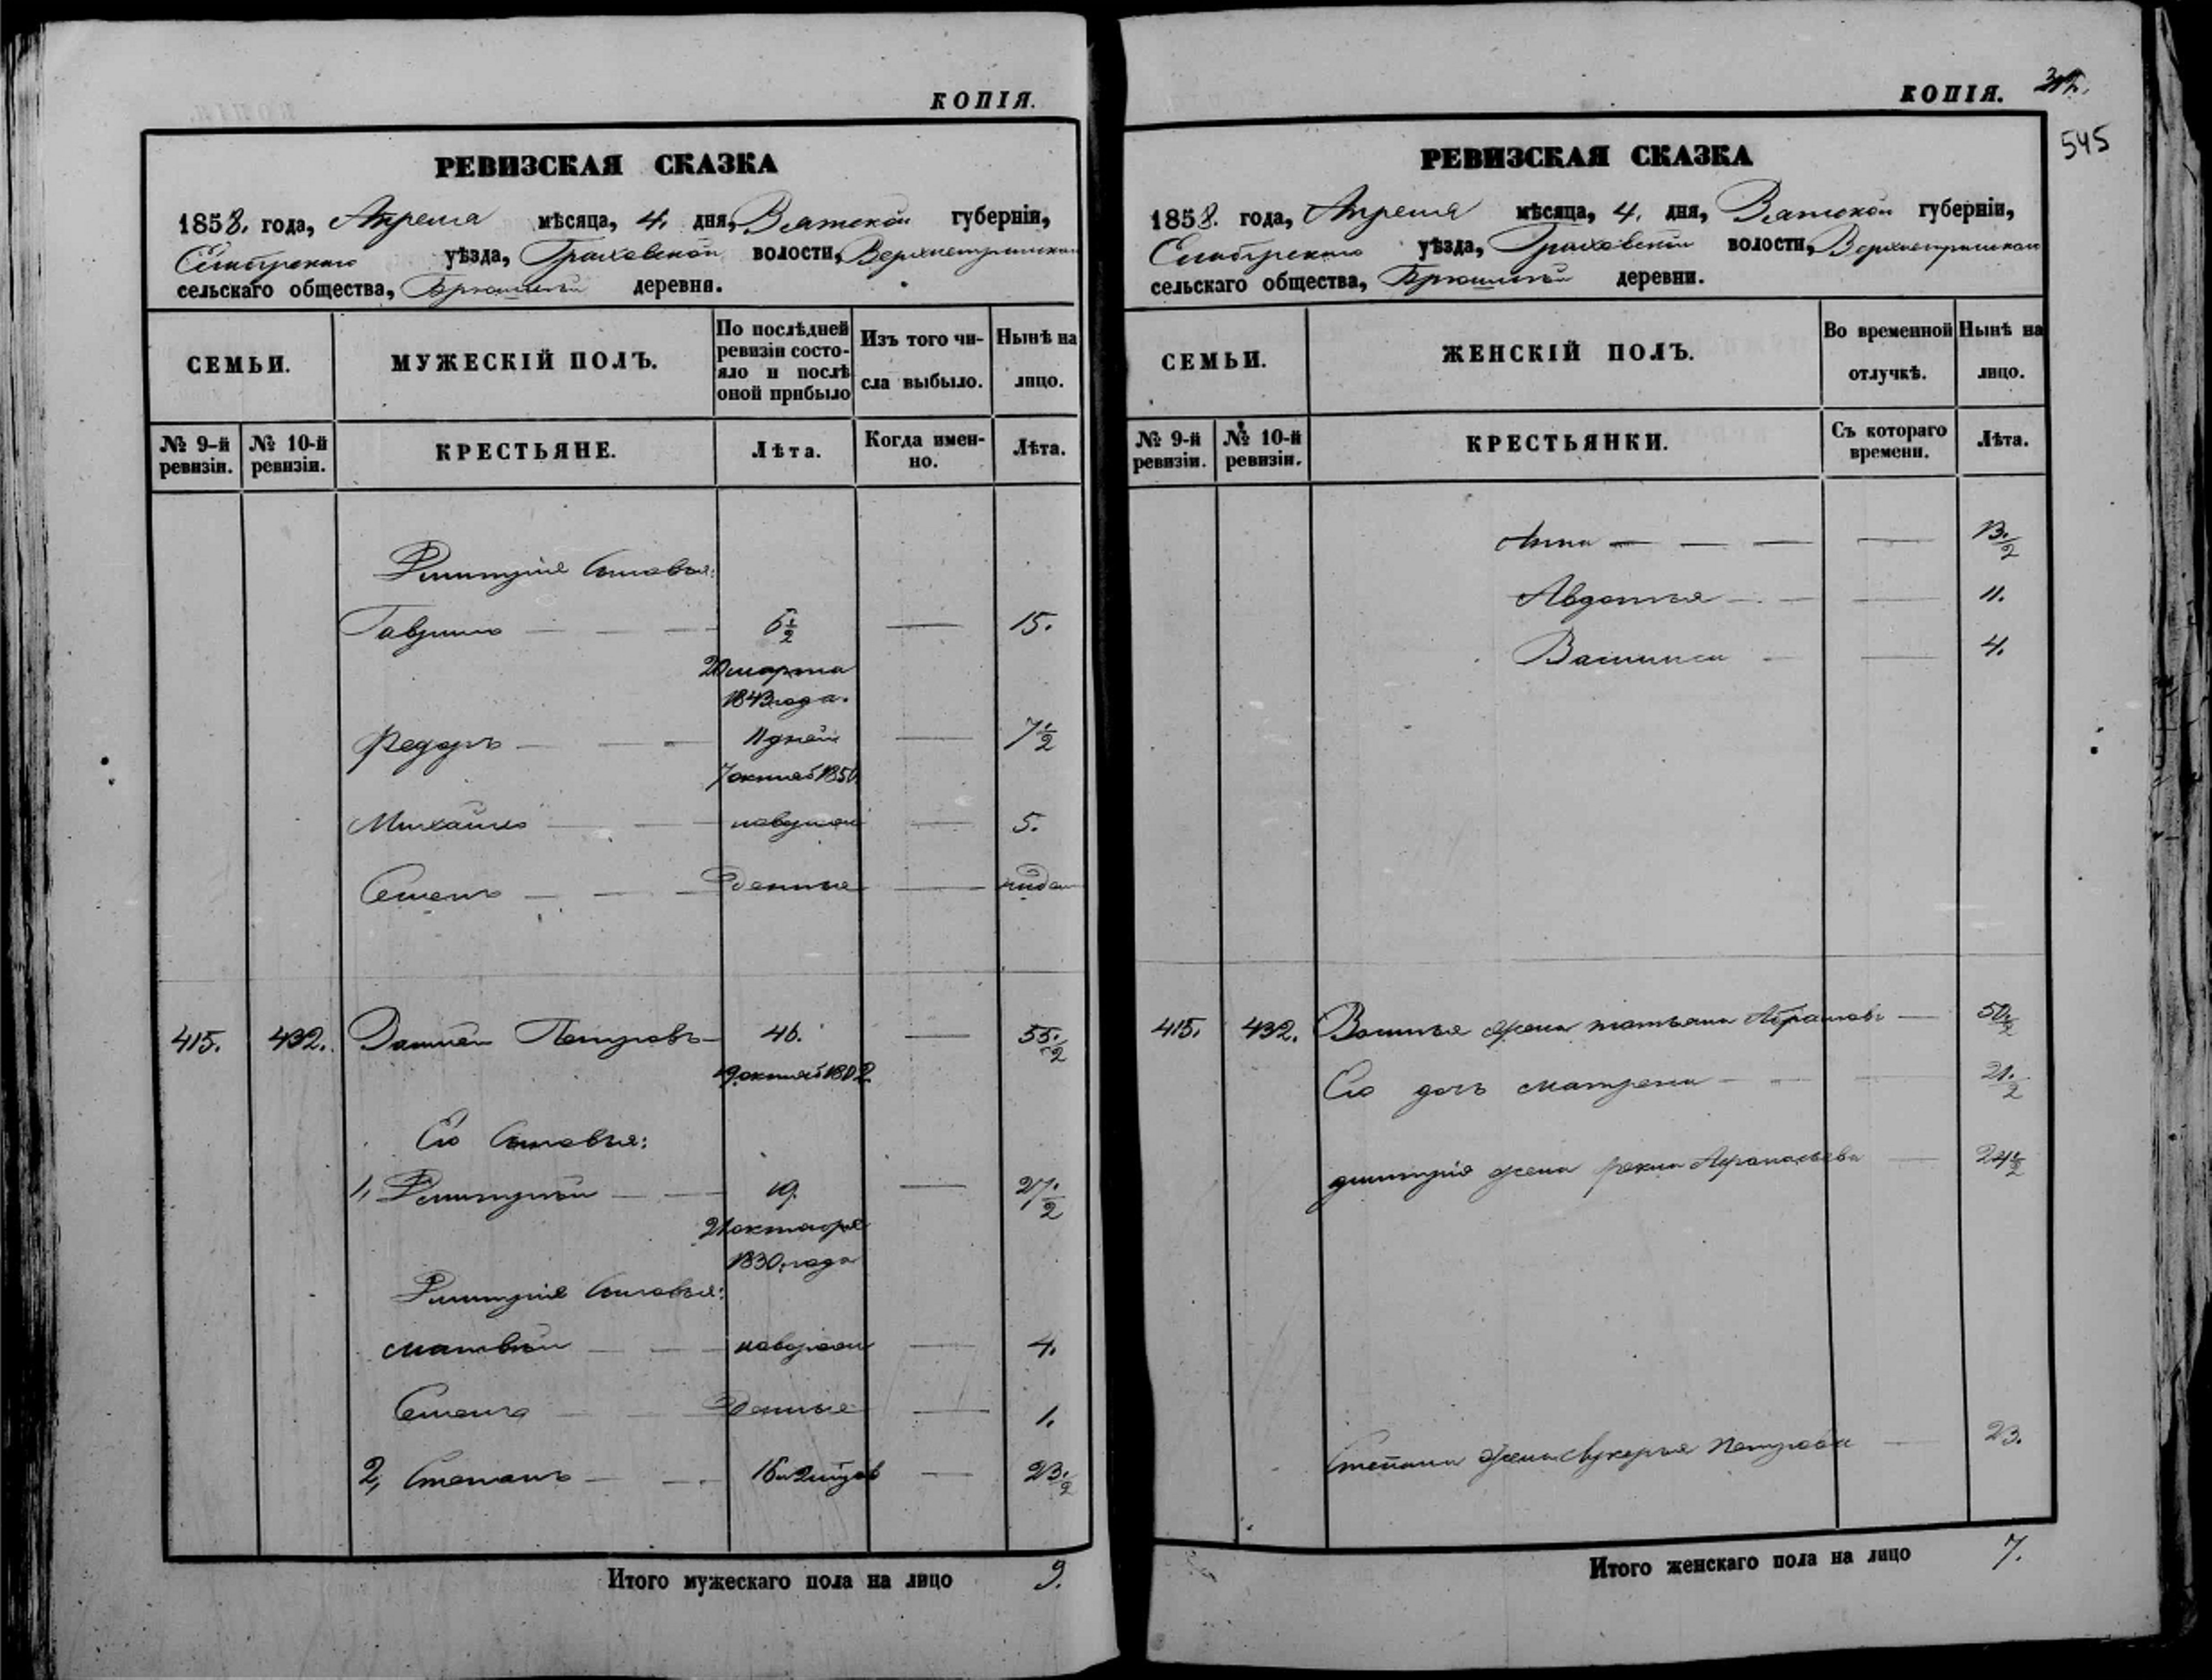 КОПІЯ.
РЕВИЗСКАЯ СКАЗКА
1858. года, Апреля мѣсяца, 4. дня, Вятской губерніи,
Елабугскаго уѣзда, Граховской волости,
сельскаго общества, деревня.
СЕМЬИ.
МУЖЕСКІЙ ПОЛЪ.
По послѣдней ревизіи состояло и послѣ оной прибыло
Изъ того числа выбыло.
Нынѣ на лицо.
№ 9-й ревизіи.
№ 10-й ревизіи.
КРЕСТЬЯНЕ.
Лѣта.
Когда именно.
Лѣта.
Дмитрія сыновья:
Гаврило 6 1/2 15.
20 марта
1843 года.
Федоръ 11 дней 7 1/2
7 октяб 1850
Михайло 5.
Семенъ
415. 432. Петровъ 46. 55 1/2
октяб 1802
Его сыновья:
1, Дмитрій 19. 27 1/2
21 октября
1830 года
Дмитрія сыновья:
Матвѣй 4.
Семенъ 1.
2, Степанъ 23 1/2
Итого мужескаго пола на лицо 9.
КОПІЯ.
545
РЕВИЗСКАЯ СКАЗКА
1858. года, Апреля мѣсяца, 4. дня, Вятской губерніи,
Елабугскаго уѣзда, Граховской волости,
сельскаго общества, деревни.
СЕМЬИ.
ЖЕНСКІЙ ПОЛЪ.
Во временной отлучкѣ.
Нынѣ на лицо.
№ 9-й ревизіи.
№ 10-й ревизіи.
КРЕСТЬЯНКИ.
Съ котораго времени.
Лѣта.
Анна 13 1/2
Авдотья 11.
4.
415. 432. жена татьяна Абрамова 50 1/2
Его дочь матрена 21 1/2
дмитрія жена Афанасьева 24 1/2
Степана жена Лукерья Петрова 23.
Итого женскаго пола на лицо 7.